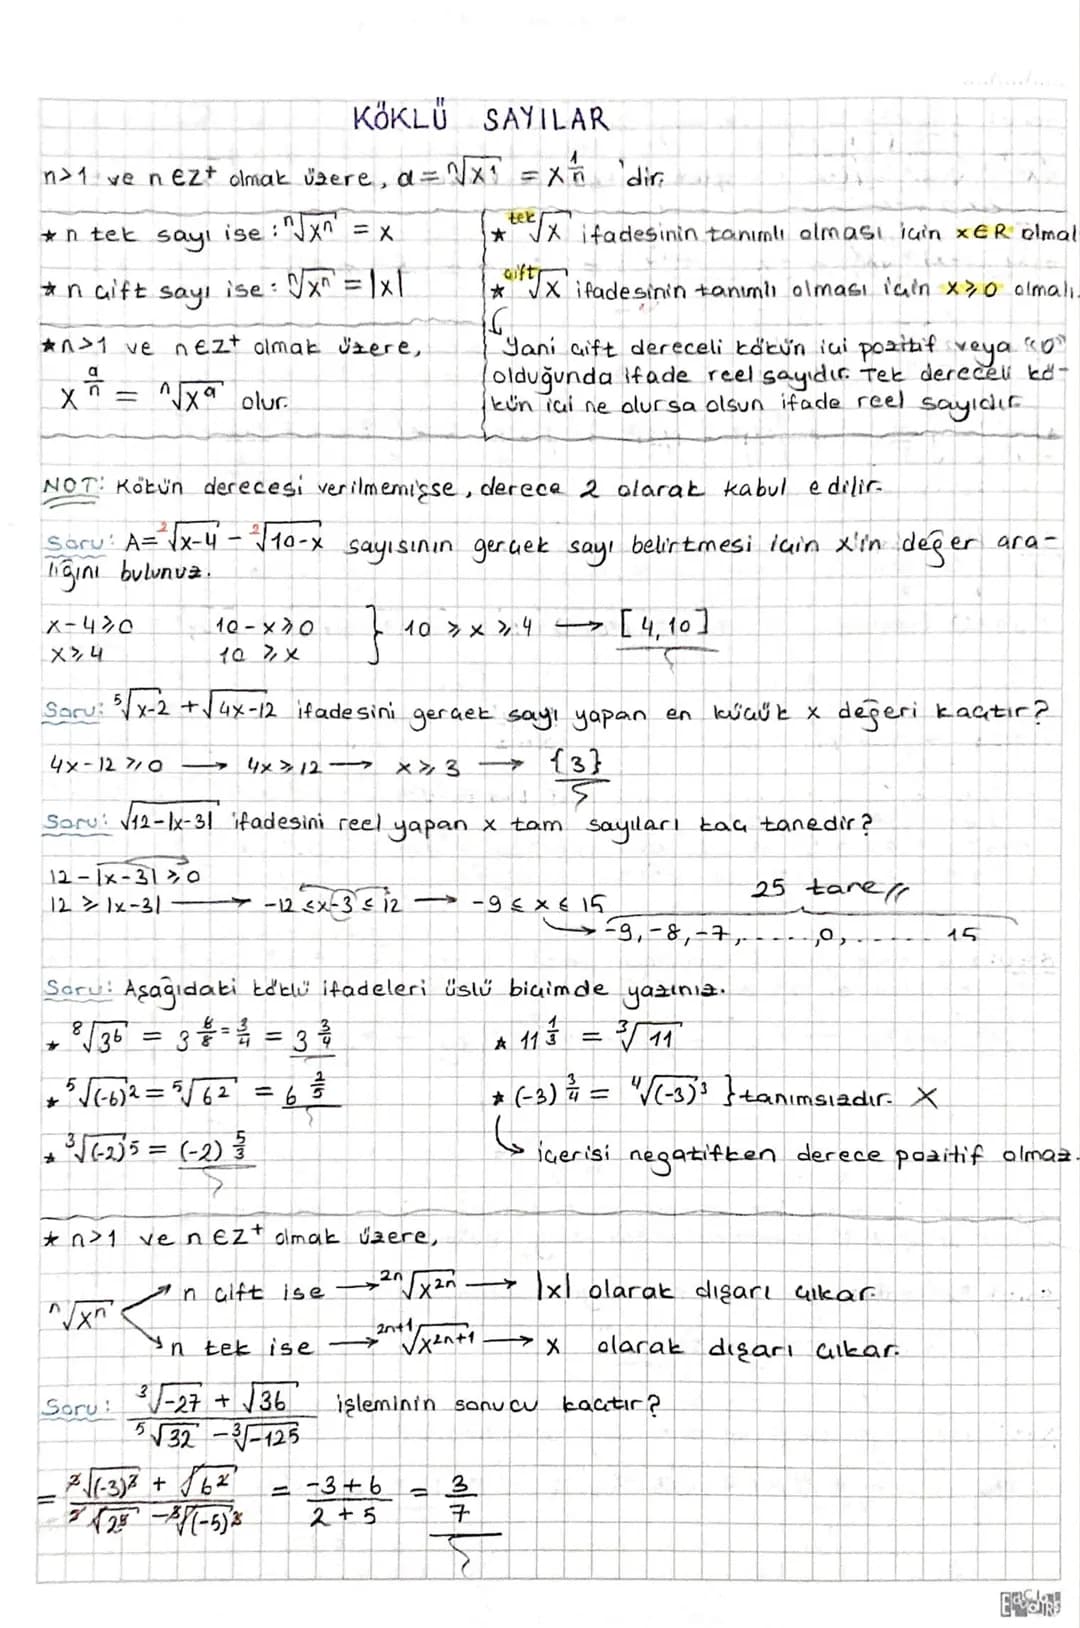 KÖKLÜ SAYILAR
n>1 ve n∈z⁺ olmak üzere, a = ⁿ√x¹ = x^(1/n) 'dir.
* n tek sayı ise : ⁿ√xⁿ = x
* n çift sayı ise : ⁿ√xⁿ = |x|
* n>1 ve n∈z⁺ olmak üzere,
x^(a/n) = ⁿ√xᵃ olur.
* ᵗᵉᵏ√x ifadesinin tanımlı olması için x∈R olmal
* ᶜ̧ⁱᶠᵗ√x ifadesinin tanımlı olması için x⩾0 olmalı.
Yani çift dereceli kökün içi pozitif veya "0"
olduğunda ifade reel sayıdır. Tek dereceli kö-
kün içi ne olursa olsun ifade reel sayıdır.
NOT: Kökün derecesi verilmemişse, derece 2 olarak kabul edilir.
Soru: A= ²√x-4 - ²√10-x sayısının gerçek sayı belirtmesi için x'in değer ara-
lığını bulunuz.
x-4⩾0 10-x⩾0 } 10 ⩾ x ⩾ 4 → [4,10]
x⩾4 10 ⩾ x
Soru: ⁵√x-2 + √4x-12 ifadesini gerçek sayı yapan en küçük x değeri kaçtır?
4x-12 ⩾0 → 4x⩾12 → x⩾3 → {3}
Soru: √12-|x-3| ifadesini reel yapan x tam sayıları kaç tanedir?
12-|x-3| ⩾0
12 ⩾ |x-3| → -12 ≤ x-3 ≤ 12 → -9 ≤ x ≤ 15 25 tane //
→ -9, -8, -7, ......, 0, ...... 15
Soru: Aşağıdaki köklü ifadeleri üslü biçimde yazınız.
* ⁸√3⁶ = 3^(6/8 = 3/4) = 3^(3/4)
* 11^(1/3) = ³√11
* ⁵√(-6)² = ⁵√6² = 6^(2/5)
* (-3)^(3/4) = ⁴√(-3)³ } tanımsızdır. X
* ³√(-2)⁵ = (-2)^(5/3)
içerisi negatifken derece pozitif olmaz.
* n>1 ve n∈z⁺ olmak üzere,
ⁿ√xⁿ
n çift ise → ²ⁿ√x²ⁿ → |x| olarak dışarı çıkar.
n tek ise → ²ⁿ⁺¹√x²ⁿ⁺¹ → x olarak dışarı çıkar.
Soru: (³√-27 + √36) / (⁵√32 - ³√-125) işleminin sonucu kaçtır?
= (³√(-3)³ + √6²) / (⁵√2⁵ - ³√(-5)³) = (-3+6) / (2+5) = 3/7